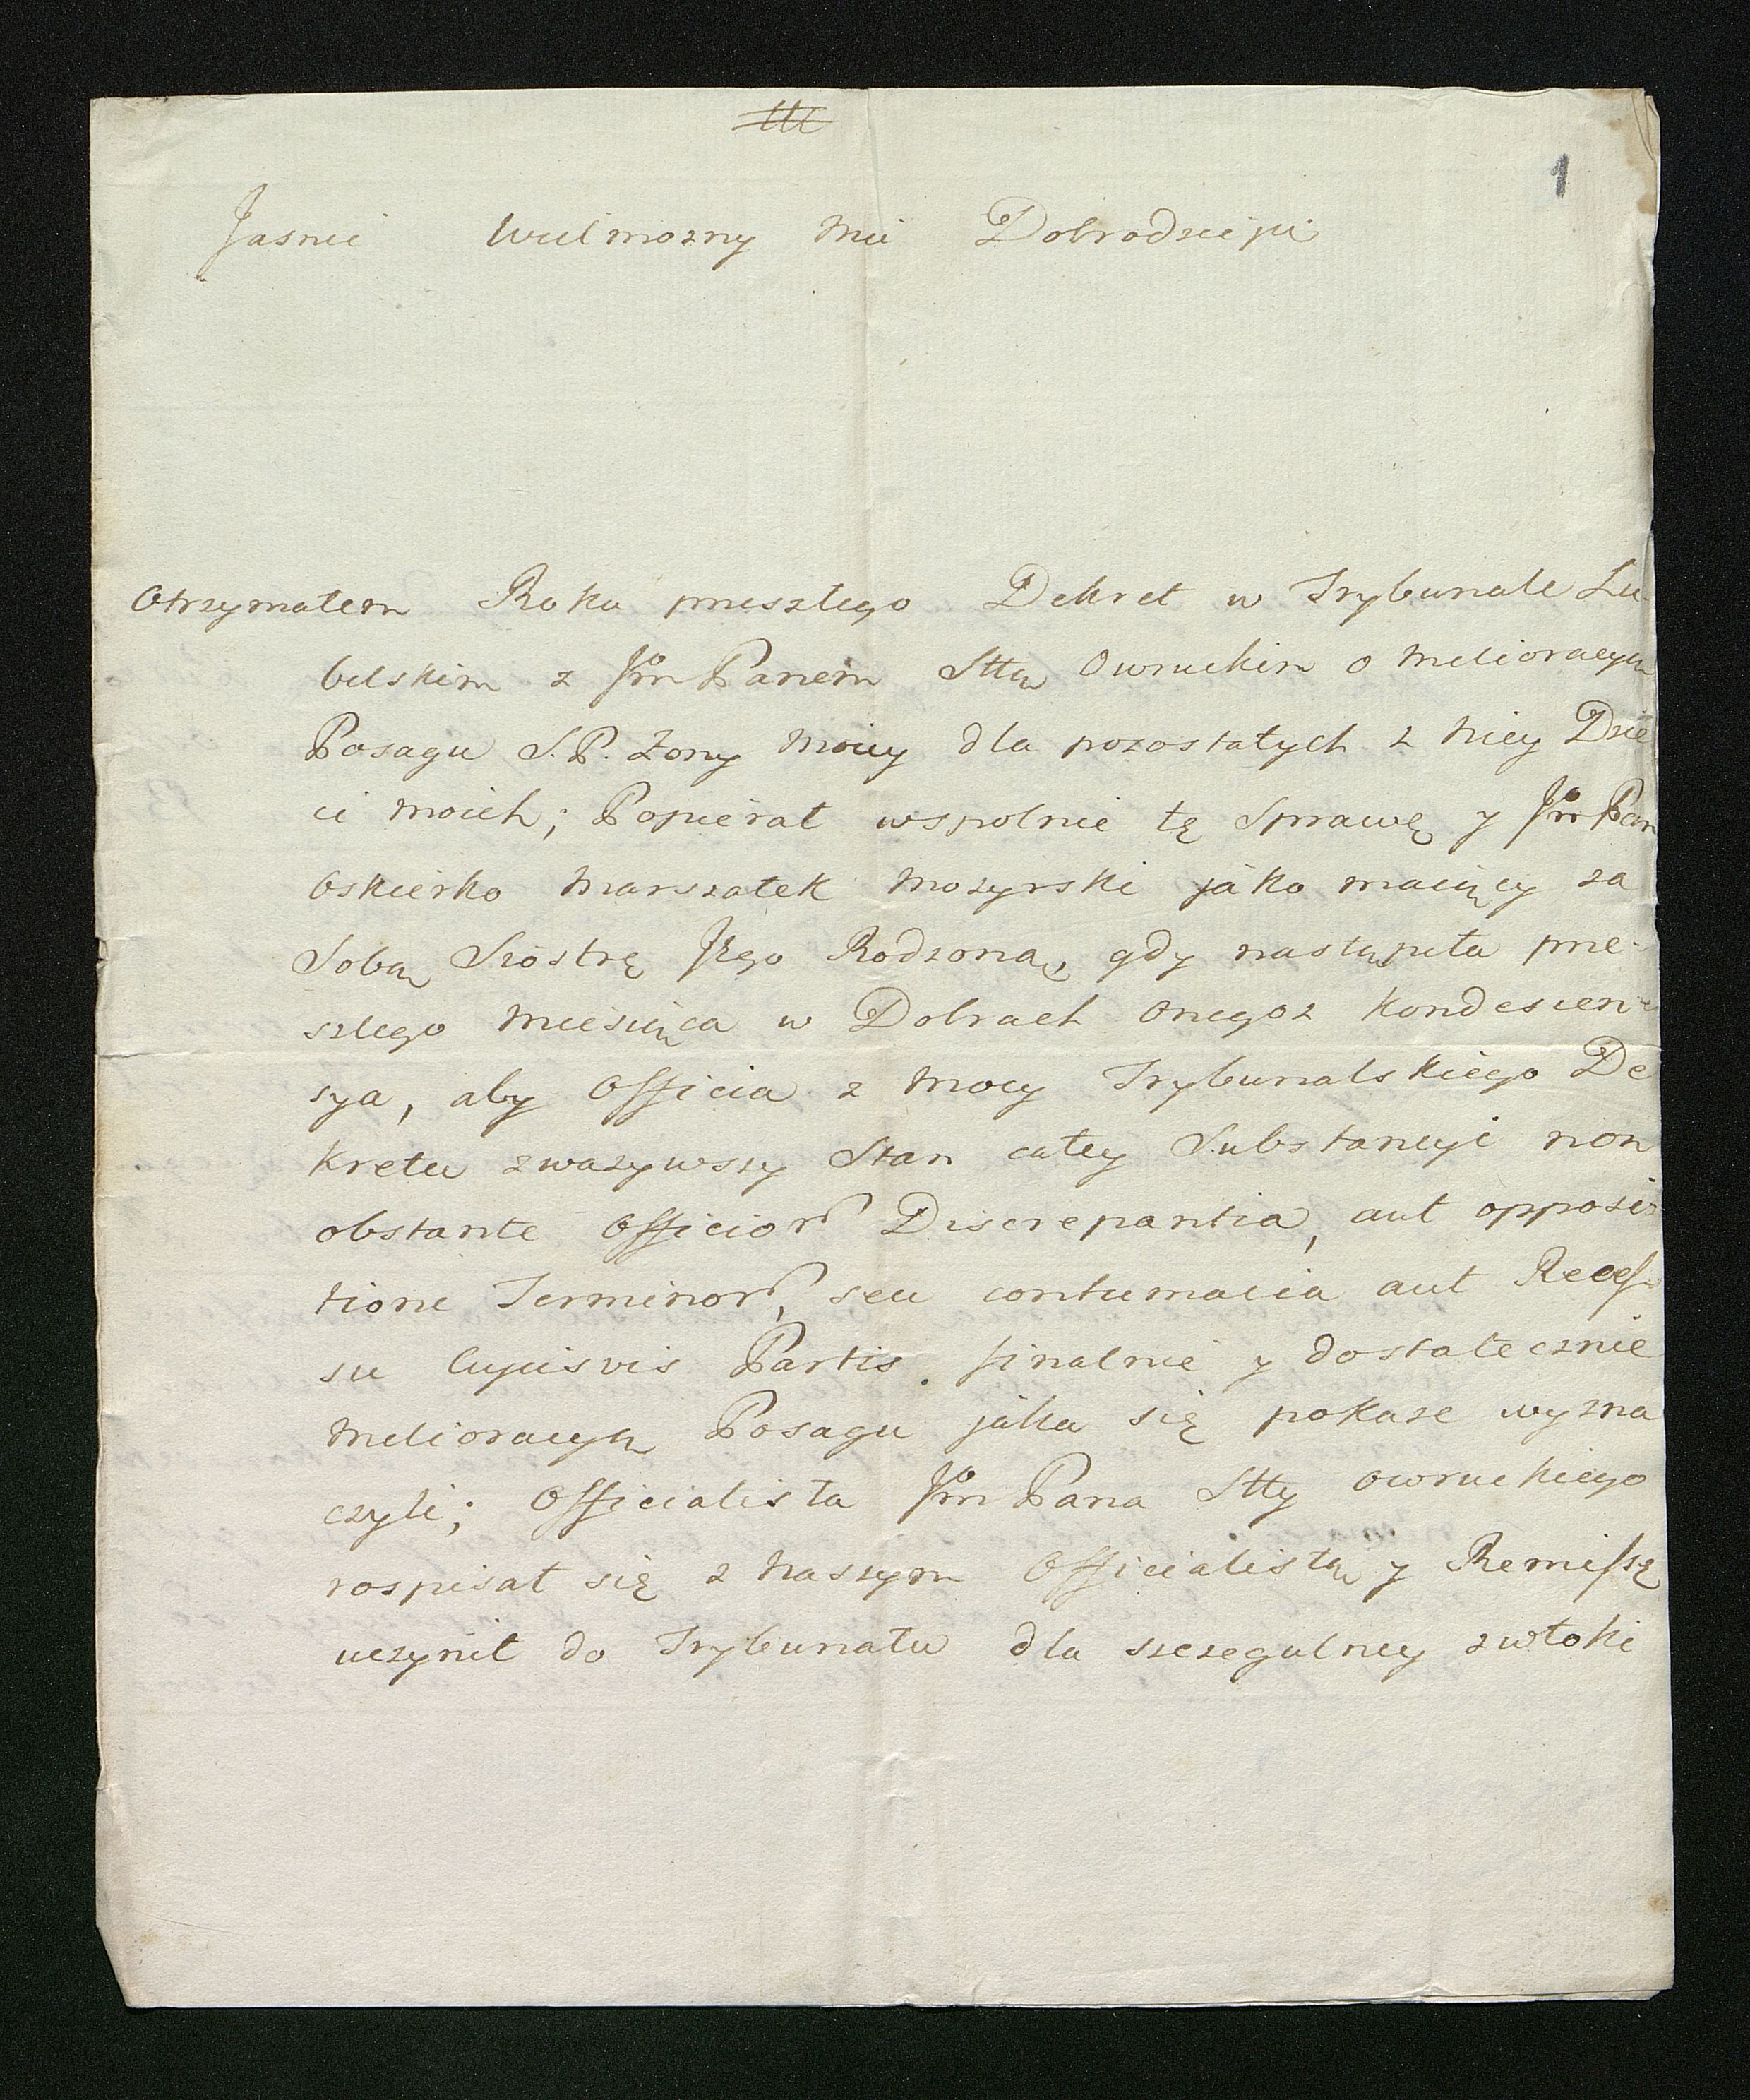 1
Jasnie Wielmozny Mci Dobrodzieju
Otrzymałem Roku przeszłego Dekret w Trybunale Lu-
belskim z Jm Panem Sttą Owruckim o Melioracyą
Posagu S.P. Zony Moiey dla pozostałych z Niey Dzie
ci moich; Popierał wspolnie tę Sprawę y Jm Pan
Oskierko Marszałek Mozyrski jako maiący za
Sobą Siostrę Jego Rodzoną, gdy nastąpiła prze-
szłego Miesiąca w Dobrach Onegoz Kondescen-
sya, aby Officia z Mocy Trybunalskiego De
kretu zwazywszy Stan całey Substancyi non
obstante Officior Discrepantia, aut opposi-
tione Terminor, seu contumacia aut Reces-
su Cujusvis Partis. finalnie y dostatecznie
Melioracyą Posagu jaka się pokaze wyzna
czyli; Officialista Jm Pana Stty Owruckiego
rospisał się z Naszym Officialistą y Remissę
uczynił do Trybunału dla szczegulney zwłoki